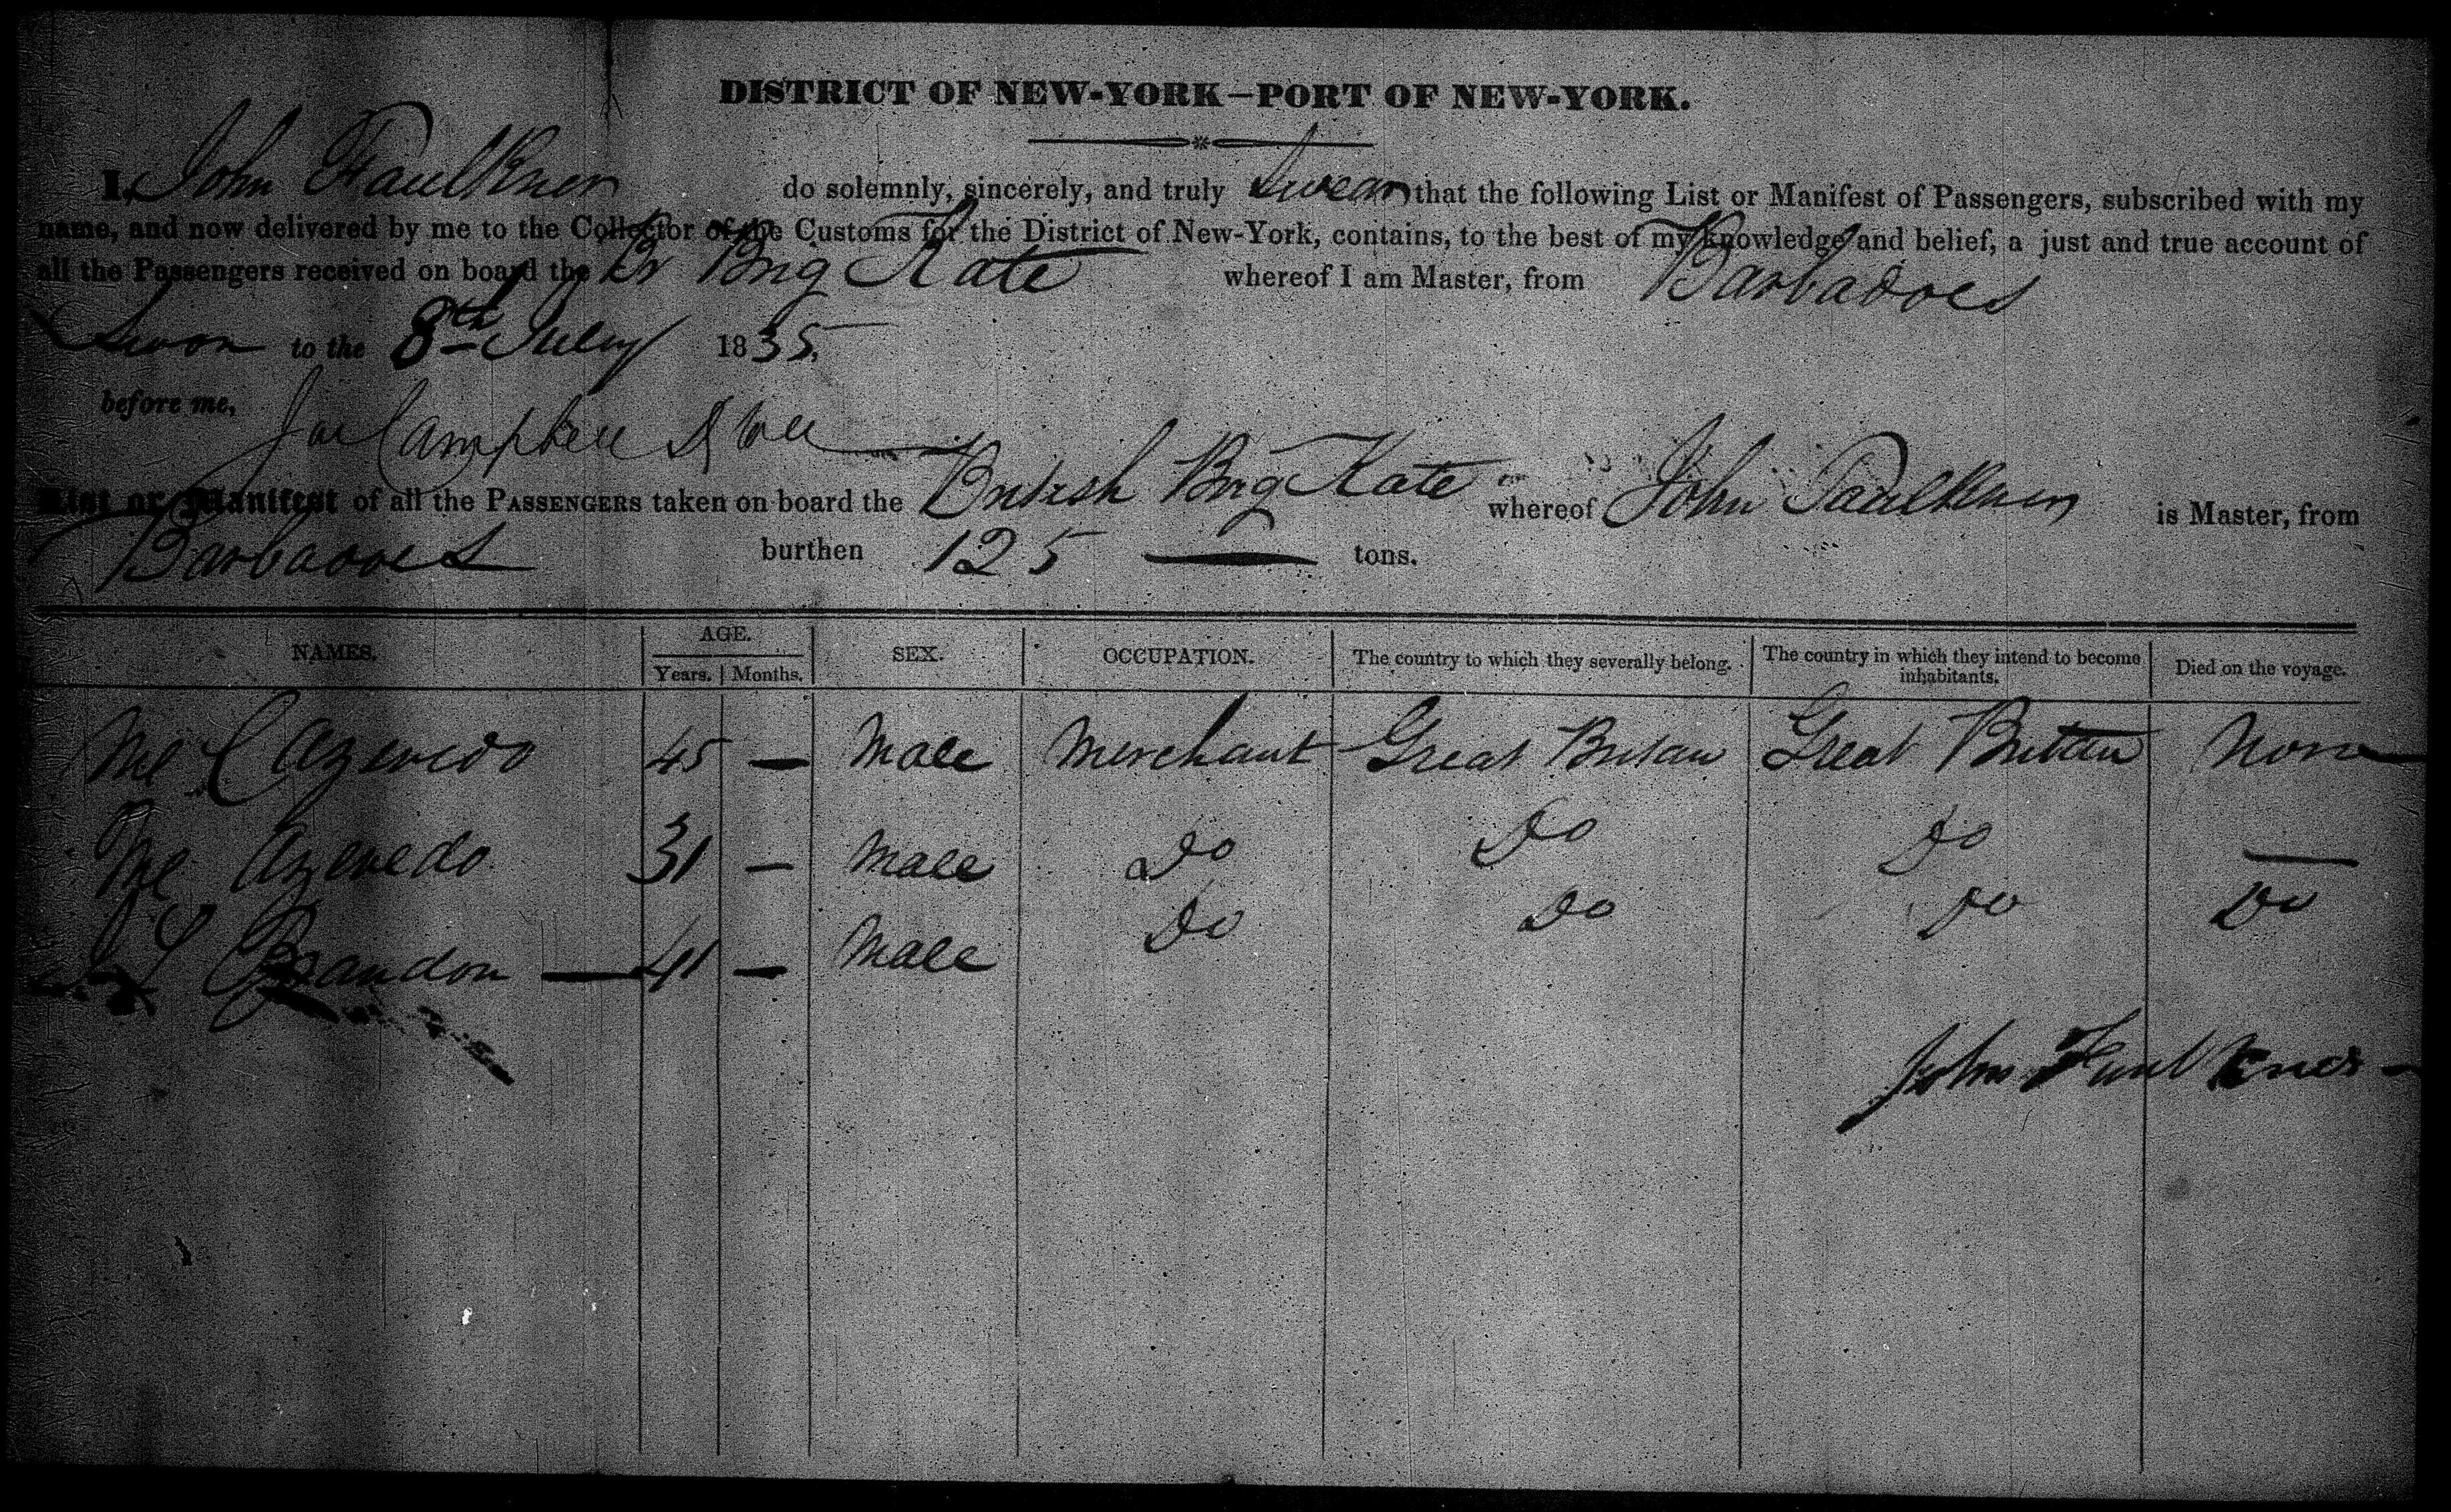 DISTRICT OF NEW-YORK—PORT OF NEW-YORK.
I, John Faulkner do solemnly, sincerely, and truly Swear that the following List or Manifest of Passengers, subscribed with my
name, and now delivered by me to the Collector of the Customs for the District of New-York, contains, to the best of my knowledge and belief, a just and true account of
all the Passengers received on board the Br Brig Kate whereof I am Master, from Barbadoes
Sworn to the 8th July 1835.
before me,
Campbell
List or Manifest of all the PASSENGERS taken on board the British Brig Kate whereof John Faulkner is Master, from
Barbadoes burthen 125 — tons.
NAMES. AGE. Years. Months. SEX. OCCUPATION. The country to which they severally belong. The country in which they intend to become inhabitants. Died on the voyage.
C Azevedo 45 — Male Merchant Great Britain Great Britain None
Azevedo 31 — Male Do Do Do —
Brandon — 41 — Male Do Do Do Do
John Faulkner